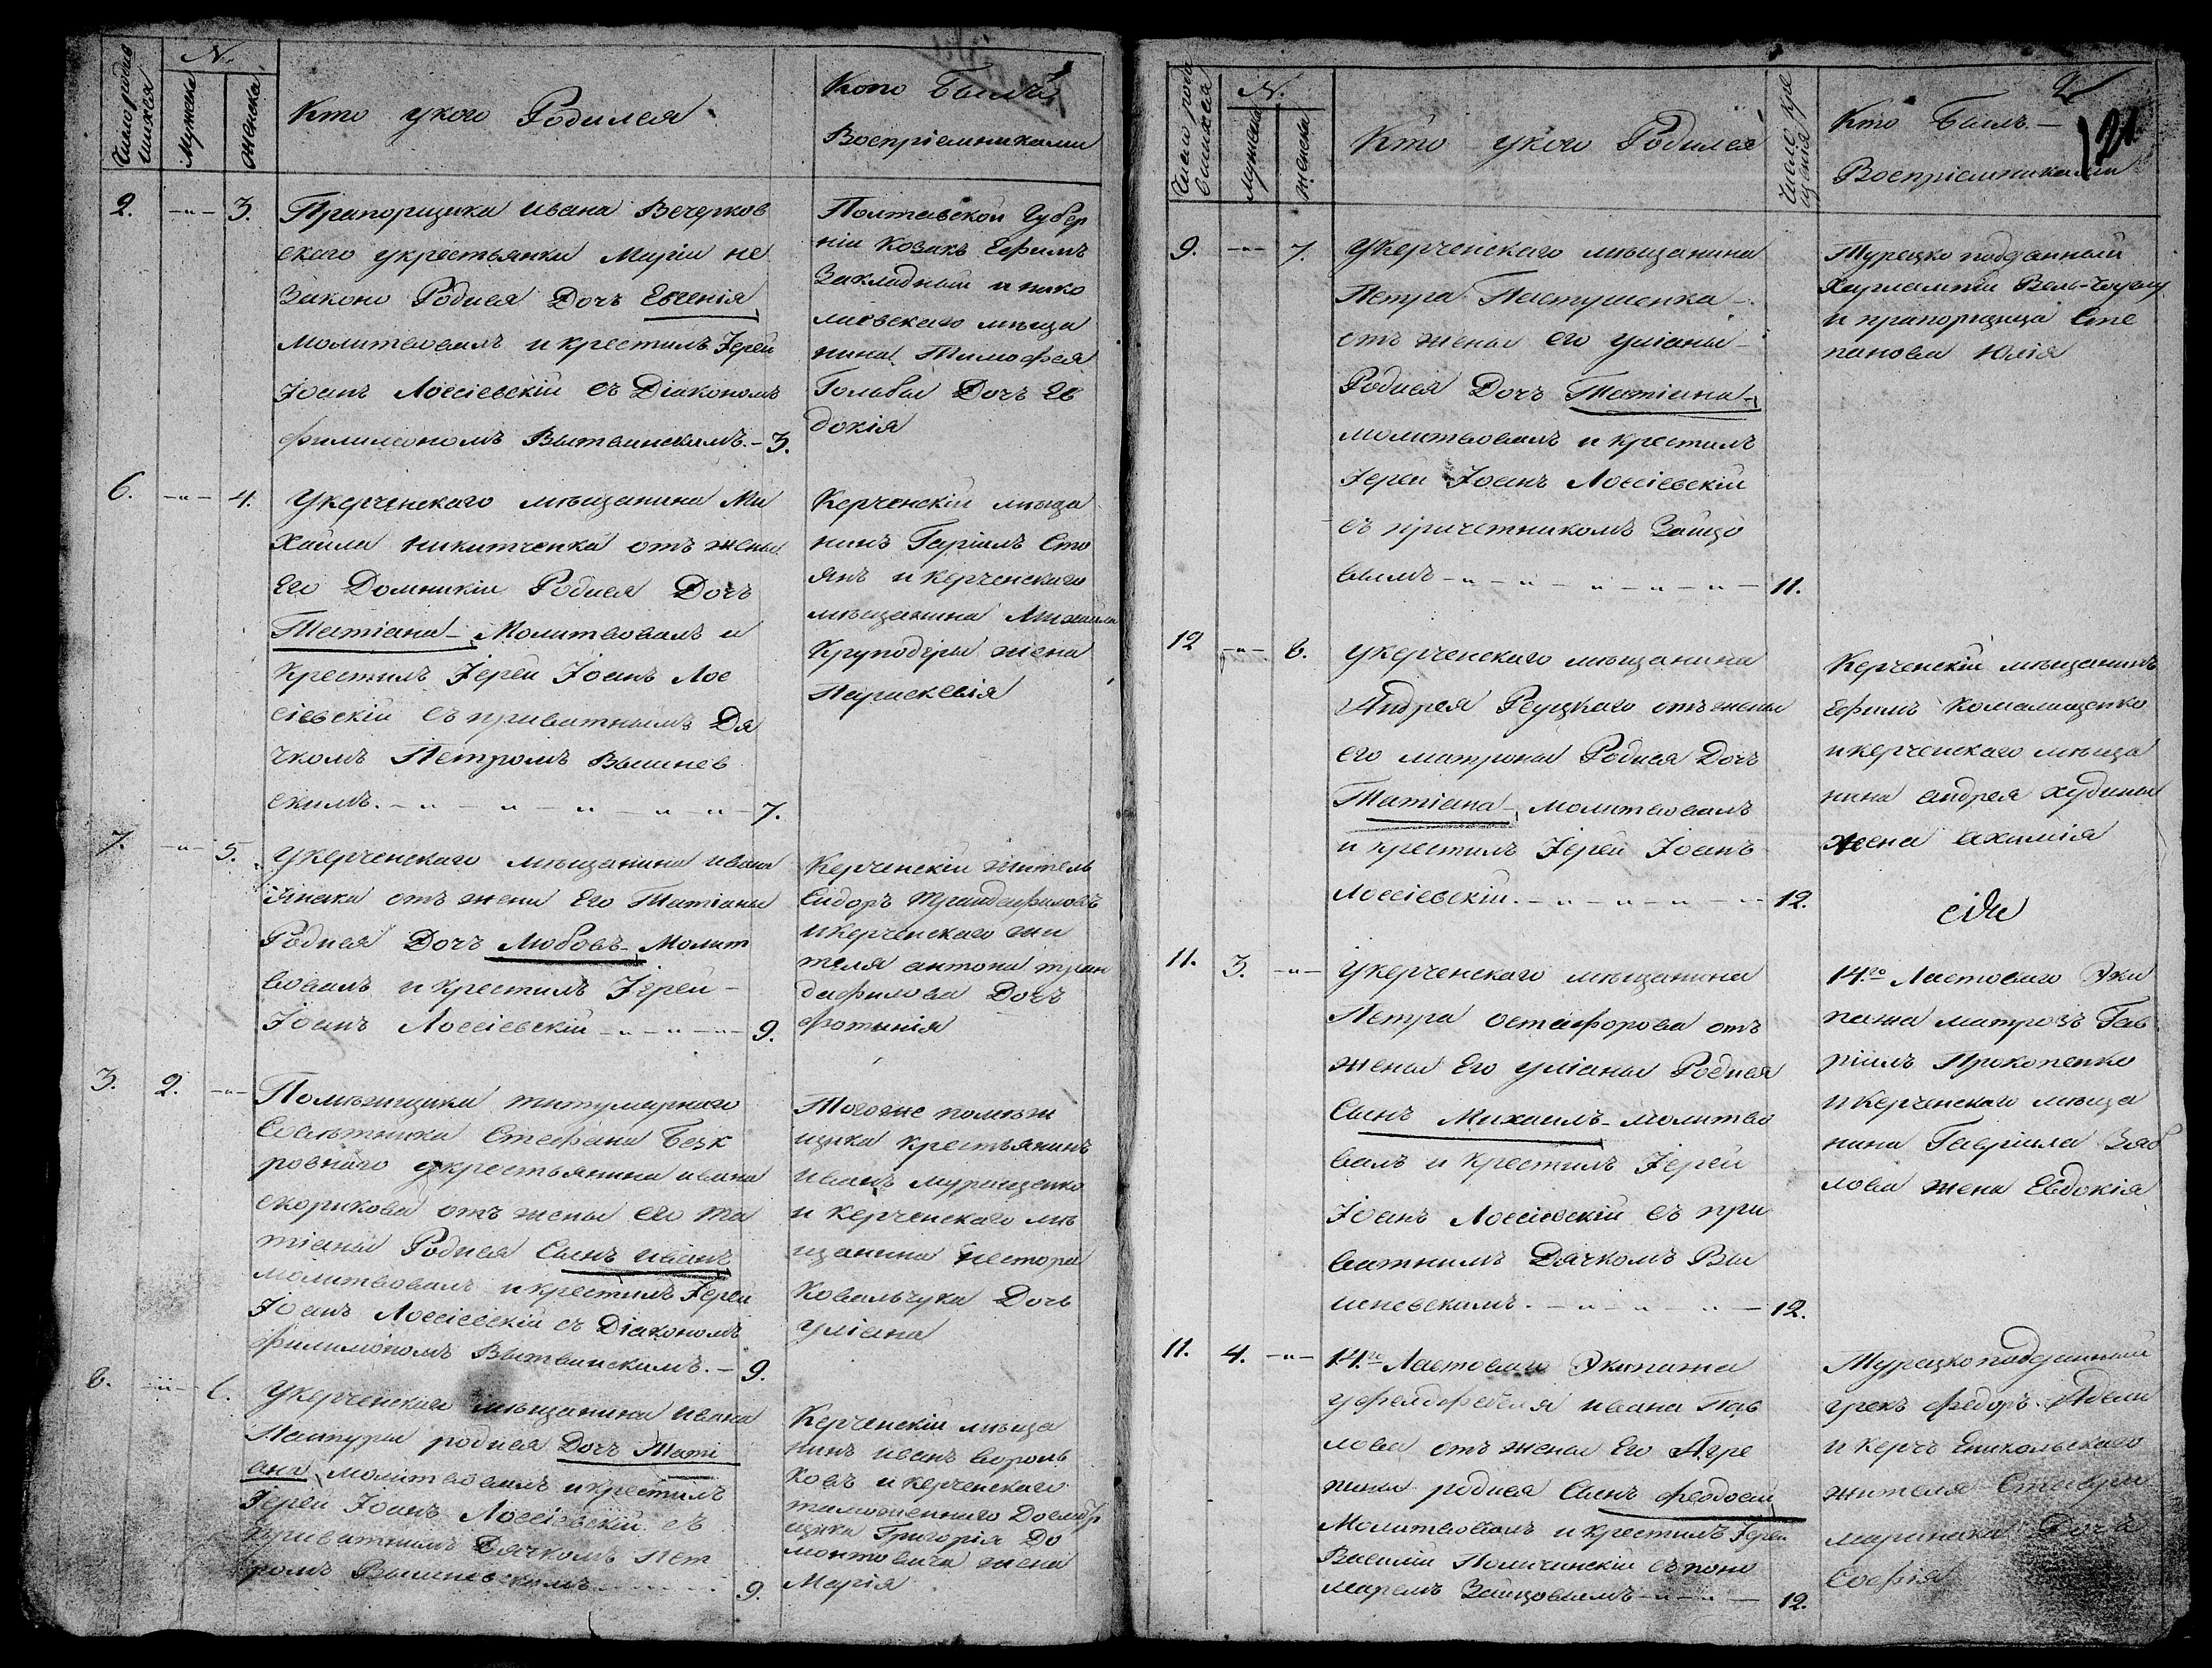 Число родив
шихся
N.
Мужска
Женска
Кто укого Родился
Кто Былъ
Воспріемниками
2. -"- 3. Прапорщика Ивана Вечерков
скаго укрестьянки Маріи не
Законо Родися Дочъ Евгенія
молитвовалъ и крестилъ Іерей
Іоанъ Лоссіевскій съ Діакономъ
филимономъ Вытвинскимъ. - 3.
Полтавской Губер
ніи Козакъ Ефимъ
Закладный и нико
лаевскаго мѣща
нина Тимофея
Гольбы Дочъ Ев
докія
6. -"- 4. Укерченскаго мѣщанина Ми
хаила никитченка отъ жены
Его Домникіи Родися Дочъ
Татіана - Молитвовалъ и
Крестилъ Іерей Іоанъ Лос
сіевскій съ приватнымъ Дя
чкомъ Петромъ Вышнев
скимъ. - " - " - " - " - " - 7.
Керченскій мѣща
нинъ Гаріилъ Сто
янъ и керченскаго
мѣщанина Михаила
Круподеры жена
Параскевія
7. -"- 5. Укерченскаго мѣщанина Ивана
отъ жени Его Татіаны
Родися Дочъ Любовъ - Молит
вовалъ и крестилъ Іерей -
Іоанъ Лоссіевскій - " - " - " - 9.
Керченскій житель
Сидоръ Трандафиловъ
и керченскаго жи
теля антона тран
дафилова Дочъ
фотинія
3. 2. -"- Помѣщика титулярнаго
Совѣтника Стефана Безк
ровнаго укрестьянина ивана
скорикова отъ жены его та
тіаны Родися Сынъ иванъ
молитвовалъ и крестилъ Іерей
Іоанъ Лоссіевскій съ Діакономъ
филимономъ Вытвинскимъ. - 9.
Тогоже помѣщ
щика крестьянинъ
иванъ
и керченскаго мѣ
щанина нестора
Ковальчука Дочъ
уліана
8. -"- 6. Укерченскаго мѣщанина ивана
родися Дочъ Тати
ана молитвовалъ и крестилъ
Іерей Іоанъ Лоссіевскій съ
приватнимъ Дячкомъ Пет
ромъ Вышневскимъ 9.
Керченскій мѣща
нинъ иванъ ворон
ковъ и керченскаго
таможеннаго Досмотр
щика Григорія До
монтовича жена
Марія
Число роди
вшихся
N.
Мужска
Женска
Кто укого Родился
Число кре
щенія
Кто Былъ -
Воспріемниками
2
121
9. -"- 7. Укерченскаго мѣщанина
Петра Пастушенка -
отъ жены его уліаны -
Родися Дочъ Татіана -
молитвовалъ и крестилъ
Іерей Іоанъ Лоссіевскій
съ причетникомъ Зайцо
вымъ - " - " - " - " - " - 11.
Турецко подданный
Харлампій
и прапорщица Сте
панова Юлія
12 -"- 8. Укерченскаго мѣщанина
Андрея Реуцкаго отъ жены
его матроны Родися Дочъ
Татіана - молитвовалъ
и крестилъ Іерей Іоанъ
Лоссіевскій. - " - " - " - 12.
Керченскій мѣщанинъ
Ефимъ
и керченскаго мѣща
нина андрея худины
жена акилія
11. 3. -"- Укерченскаго мѣщанина
Петра остафорова отъ
жены Его уліаны Родися
Сынъ Михаилъ - молитво
валъ и крестилъ Іерей
Іоанъ Лоссіевскій съ при
ватнимъ Дячкомъ Вы
шневскимъ. - " - " - " - 12.
14го Ластоваго Эки
пажа матрозъ Гав
ріилъ Прокопенко
и керченскаго мѣща
нина Гавріила Зяб
лова жена Евдокія
11. 4. -"- 14го Ластоваго Экипажа
уфелдфебеля ивана Пав
лова отъ жены Его Агре
пины родися Сынъ феодосій
Молитвовалъ и крестилъ Іерей
Василій съ поно
маремъ Зайцовымъ - " - " - 12.
Турецко подданный
грекъ федоръ
и керчъ Еникольскаго
жителя Ставри
маринаки Дочъ
Софія